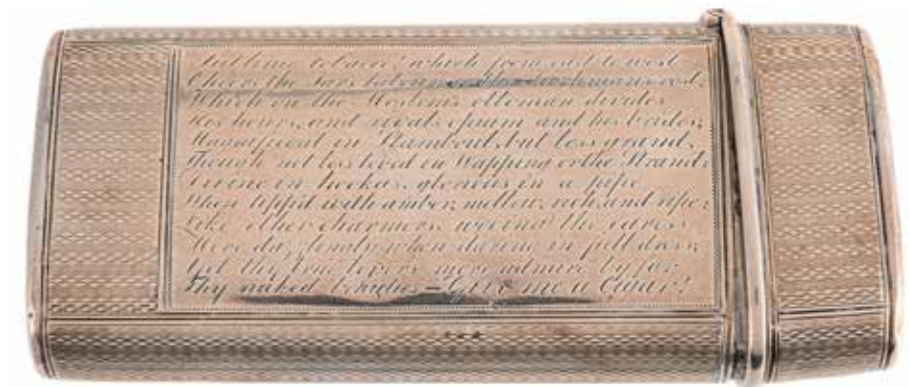 Sublime tobacco! which from east to west
Cheers the tars labour or the Turkman's rest;
Which on the Moslem's ottoman divides
His hours, and rivals opium and his brides;
Magnificent in Stamboul, but less grand,
Though not less loved in Wapping or the Strand;
Divine in hookas, glorious in a pipe
When tipp'd with amber, mellow, rich, and ripe;
Like other charmers, wooing the caress
More dazzlingly when daring in full dress;
Yet thy true lovers more admire by far
Thy naked beauties – Give me a Cigar!